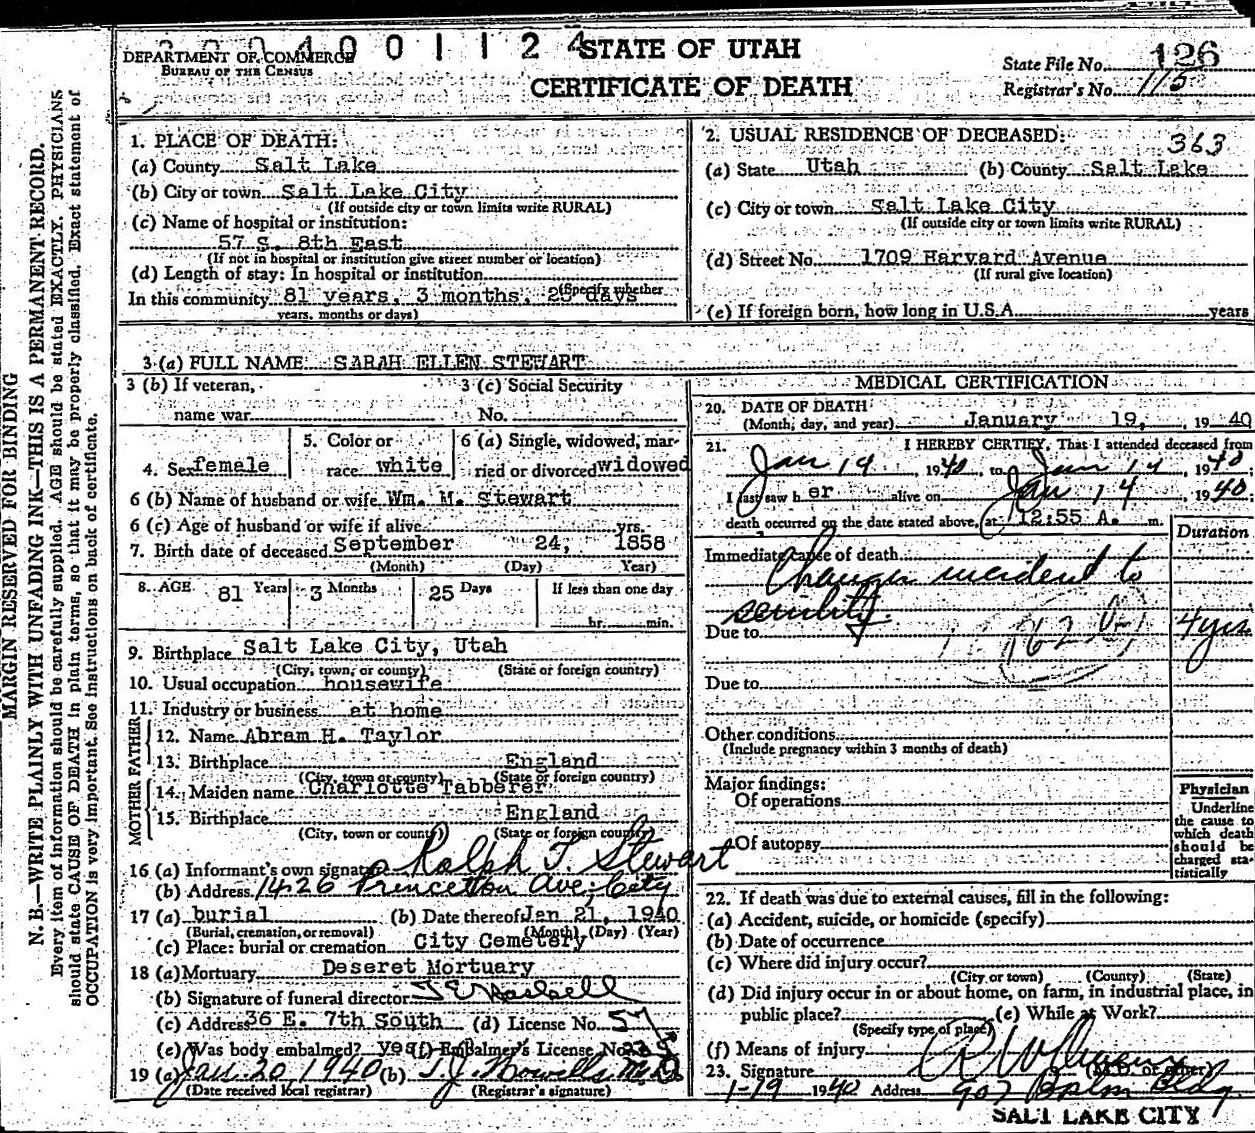 3 0 0 4 0 0 1 1 2 4
DEPARTMENT OF COMMERCE
BUREAU OF THE CENSUS
STATE OF UTAH
CERTIFICATE OF DEATH
State File No. 126
Registrar's No. 115
MARGIN RESERVED FOR BINDING
N. B.—WRITE PLAINLY WITH UNFADING INK—THIS IS A PERMANENT RECORD.
Every item of information should be carefully supplied. AGE should be stated EXACTLY. PHYSICIANS
should state CAUSE OF DEATH in plain terms, so that it may be properly classified. Exact statement of
OCCUPATION is very important. See instructions on back of certificate.
1. PLACE OF DEATH:
(a) County Salt Lake
(b) City or town Salt Lake City
(If outside city or town limits write RURAL)
(c) Name of hospital or institution:
57 S. 8th East
(If not in hospital or institution give street number or location)
(d) Length of stay: In hospital or institution
(Specify whether
In this community 81 years, 3 months, 25 days
years, months or days)
2. USUAL RESIDENCE OF DECEASED:
363
(a) State Utah (b) County Salt Lake
(c) City or town Salt Lake City
(If outside city or town limits write RURAL)
(d) Street No. 1709 Harvard Avenue
(If rural give location)
(e) If foreign born, how long in U.S.A. years
3 (a) FULL NAME SARAH ELLEN STEWART
3 (b) If veteran,
name war
3 (c) Social Security
No.
4. Sex female
5. Color or
race white
6 (a) Single, widowed, mar-
ried or divorced widowed
6 (b) Name of husband or wife Wm. M. Stewart
6 (c) Age of husband or wife if alive yrs.
7. Birth date of deceased September 24, 1858
(Month) (Day) Year)
8. AGE 81 Years 3 Months 25 Days If less than one day
hr. min.
9. Birthplace Salt Lake City, Utah
(City, town, or county) (State or foreign country)
10. Usual occupation housewife
11. Industry or business at home
FATHER
12. Name Abram H. Taylor
13. Birthplace England
(City, town or county) (State or foreign country)
MOTHER
14. Maiden name Charlotte Tabberer
15. Birthplace England
(City, town or county) (State or foreign country)
16 (a) Informant's own signature Ralph T. Stewart
(b) Address 1426 Princeton Ave., City
17 (a) burial (b) Date thereof Jan 21, 1940
(Burial, cremation, or removal) (Month) (Day) (Year)
(c) Place: burial or cremation City Cemetery
18 (a) Mortuary Deseret Mortuary
(b) Signature of funeral director
(c) Address 36 E. 7th South (d) License No. 57
(e) Was body embalmed? yes (f) Embalmer's License No.
19 (a) Jan. 20 1940 (b) T.J. Howells M.D.
(Date received local registrar) (Registrar's signature)
MEDICAL CERTIFICATION
20. DATE OF DEATH
(Month, day, and year) January 19, 1940
21. I HEREBY CERTIFY, That I attended deceased from
Jan 19 1940, to Jan 19 1940;
I last saw her alive on Jan 14, 1940;
death occurred on the date stated above, at 12:55 A. m.
Duration
Immediate cause of death
Changes incident to
senility.
Due to 162 4 yrs
Due to
Other conditions
(Include pregnancy within 3 months of death)
Major findings:
Of operations
Of autopsy
Physician
Underline
the cause to
which death
should be
charged sta-
tistically
22. If death was due to external causes, fill in the following:
(a) Accident, suicide, or homicide (specify)
(b) Date of occurrence
(c) Where did injury occur?
(City or town) (County) (State)
(d) Did injury occur in or about home, on farm, in industrial place, in
public place? (e) While at Work?
(Specify type of place)
(f) Means of injury
23. Signature (M.D. or other)
1-19 1940 Address 907 Bldg
SALT LAKE CITY